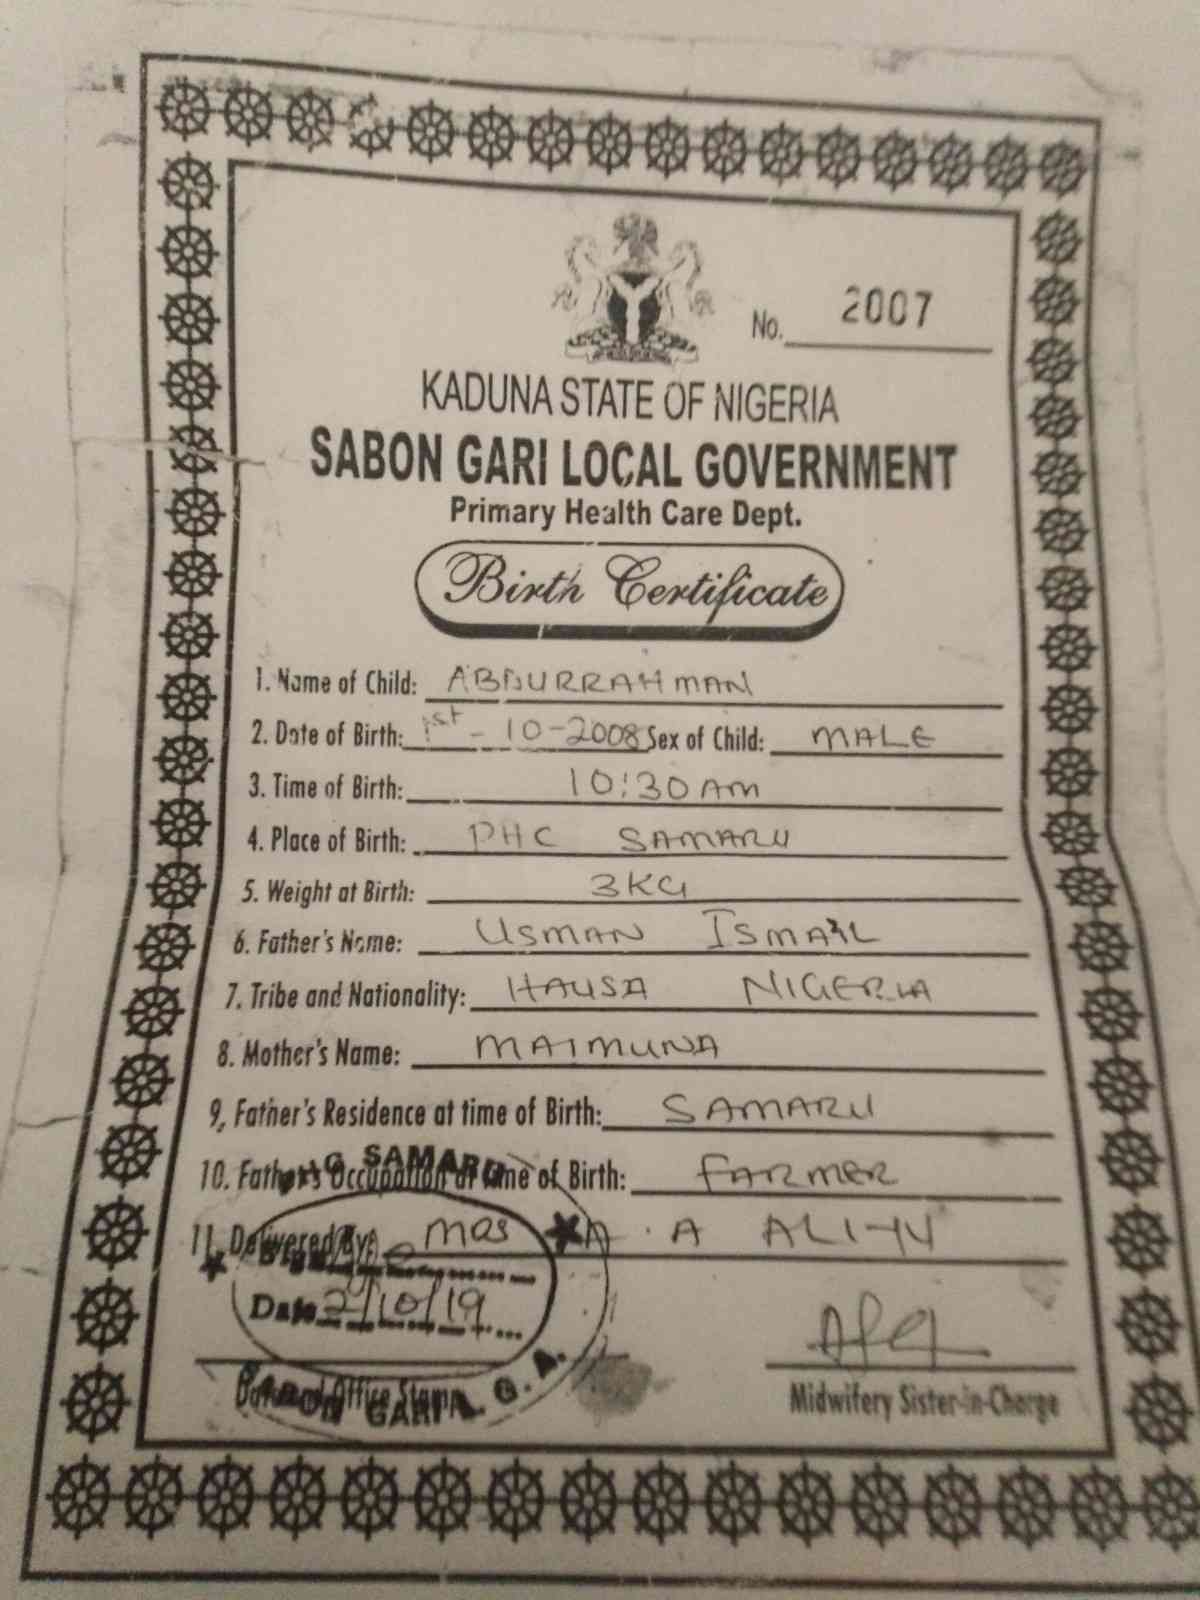 No. 2007
KADUNA STATE OF NIGERIA
SABON GARI LOCAL GOVERNMENT
Primary Health Care Dept.
Birth Certificate
1. Name of Child: ABDURRAHMAN
2. Date of Birth: 1st - 10-2008 Sex of Child: MALE
3. Time of Birth: 10:30AM
4. Place of Birth: PHC SAMARU
5. Weight at Birth: 3KG
6. Father's Name: USMAN ISMAIL
7. Tribe and Nationality: HAUSA NIGERIA
8. Mother's Name: MAIMUNA
9, Father's Residence at time of Birth: SAMARU
10. Father's Occupation at time of Birth: FARMER
11. Delivered By: MRS A. A ALIYU
SAMARU
Date 2/10/19
Date and Office Stamp
SABON GARI L.G.A.
Midwifery Sister-in-Charge